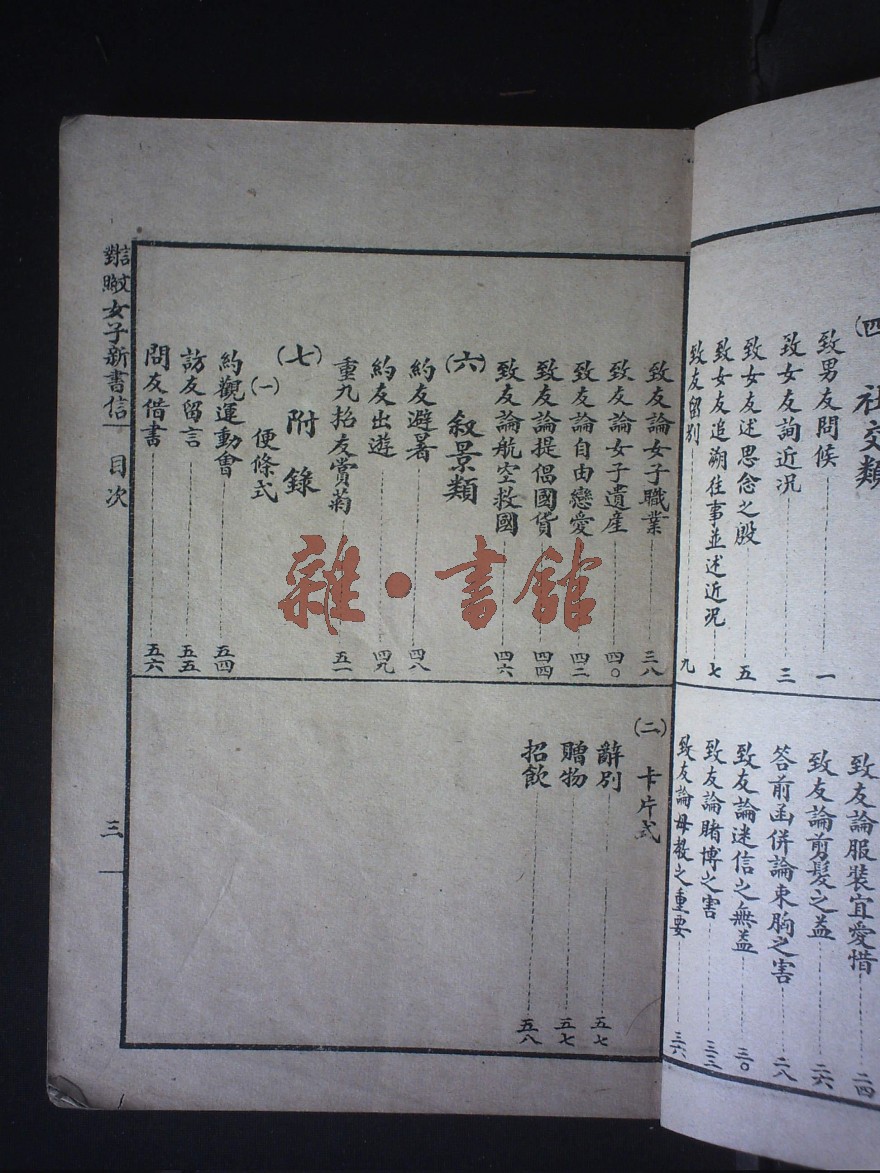 (四 社交類
致男友問候 一
致女友詢近况 三
致女友述思念之殷 五
致女友追溯往事並述近况 七
致友留別 九
致友論服裝宜愛惜 二四
致友論剪髮之益 二六
答前函併論束胸之害 二八
致友論迷信之無益 三〇
致友論賭博之害 三三
致友論母教之重要 三六
致友論女子職業 三八
致友論女子遺產 四〇
致友論自由戀愛 四二
致友論提倡國貨 四四
致友論航空救國 四六
(六) 叙景類
約友避暑 四八
約友出遊 四九
重九招友賞菊 五一
(七) 附錄
(一) 便條式
約觀運動會 五四
訪友留言 五五
問友借書 五六
(二) 卡片式
辭別 五七
贈物 五七
招飲 五八
言文對照女子新書信 目次 三
雜·書館